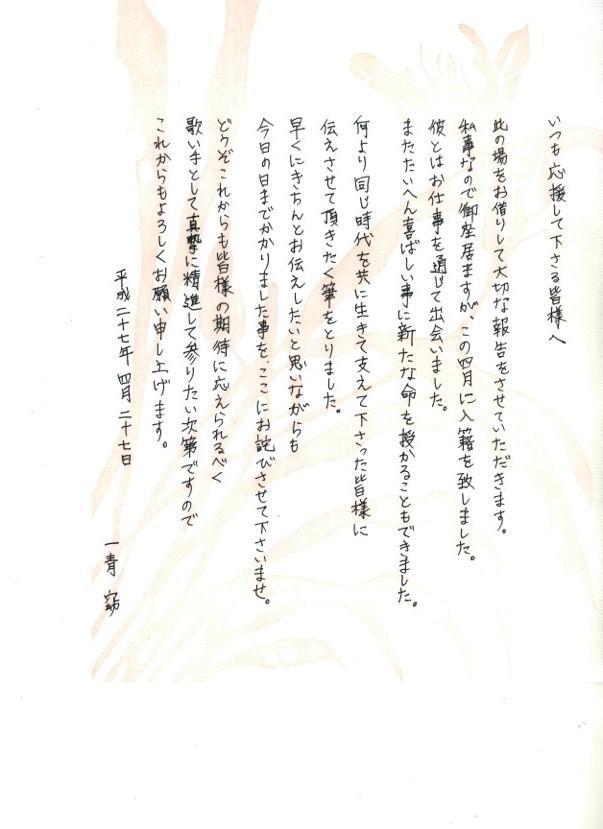 いつも応援して下さる皆様へ
此の場をお借りして大切な報告をさせていただきます。
私事なので御座居ますが、この四月に入籍を致しました。
彼とはお仕事を通じて出会いました。
またたいへん喜ばしい事に新たな命を授かることもできました。
何より同じ時代を共に生きて支えて下さった皆様に
伝えさせて頂きたく筆をとりました。
早くにきちんとお伝えしたいと思いながらも
今日の日までかかりました事を、ここにお詫びさせて下さいませ。
どうぞこれからも皆様の期待に応えられるべく
歌い手として真摯に精進して参りたい次第ですので
これからもよろしくお願い申し上げます。
平成二十七年 四月 二十七日
一青 窈